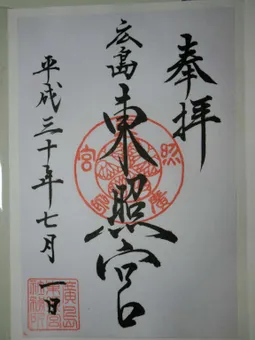 奉拝
広島
東照宮
平成三十年七月一日
照宮
廣島